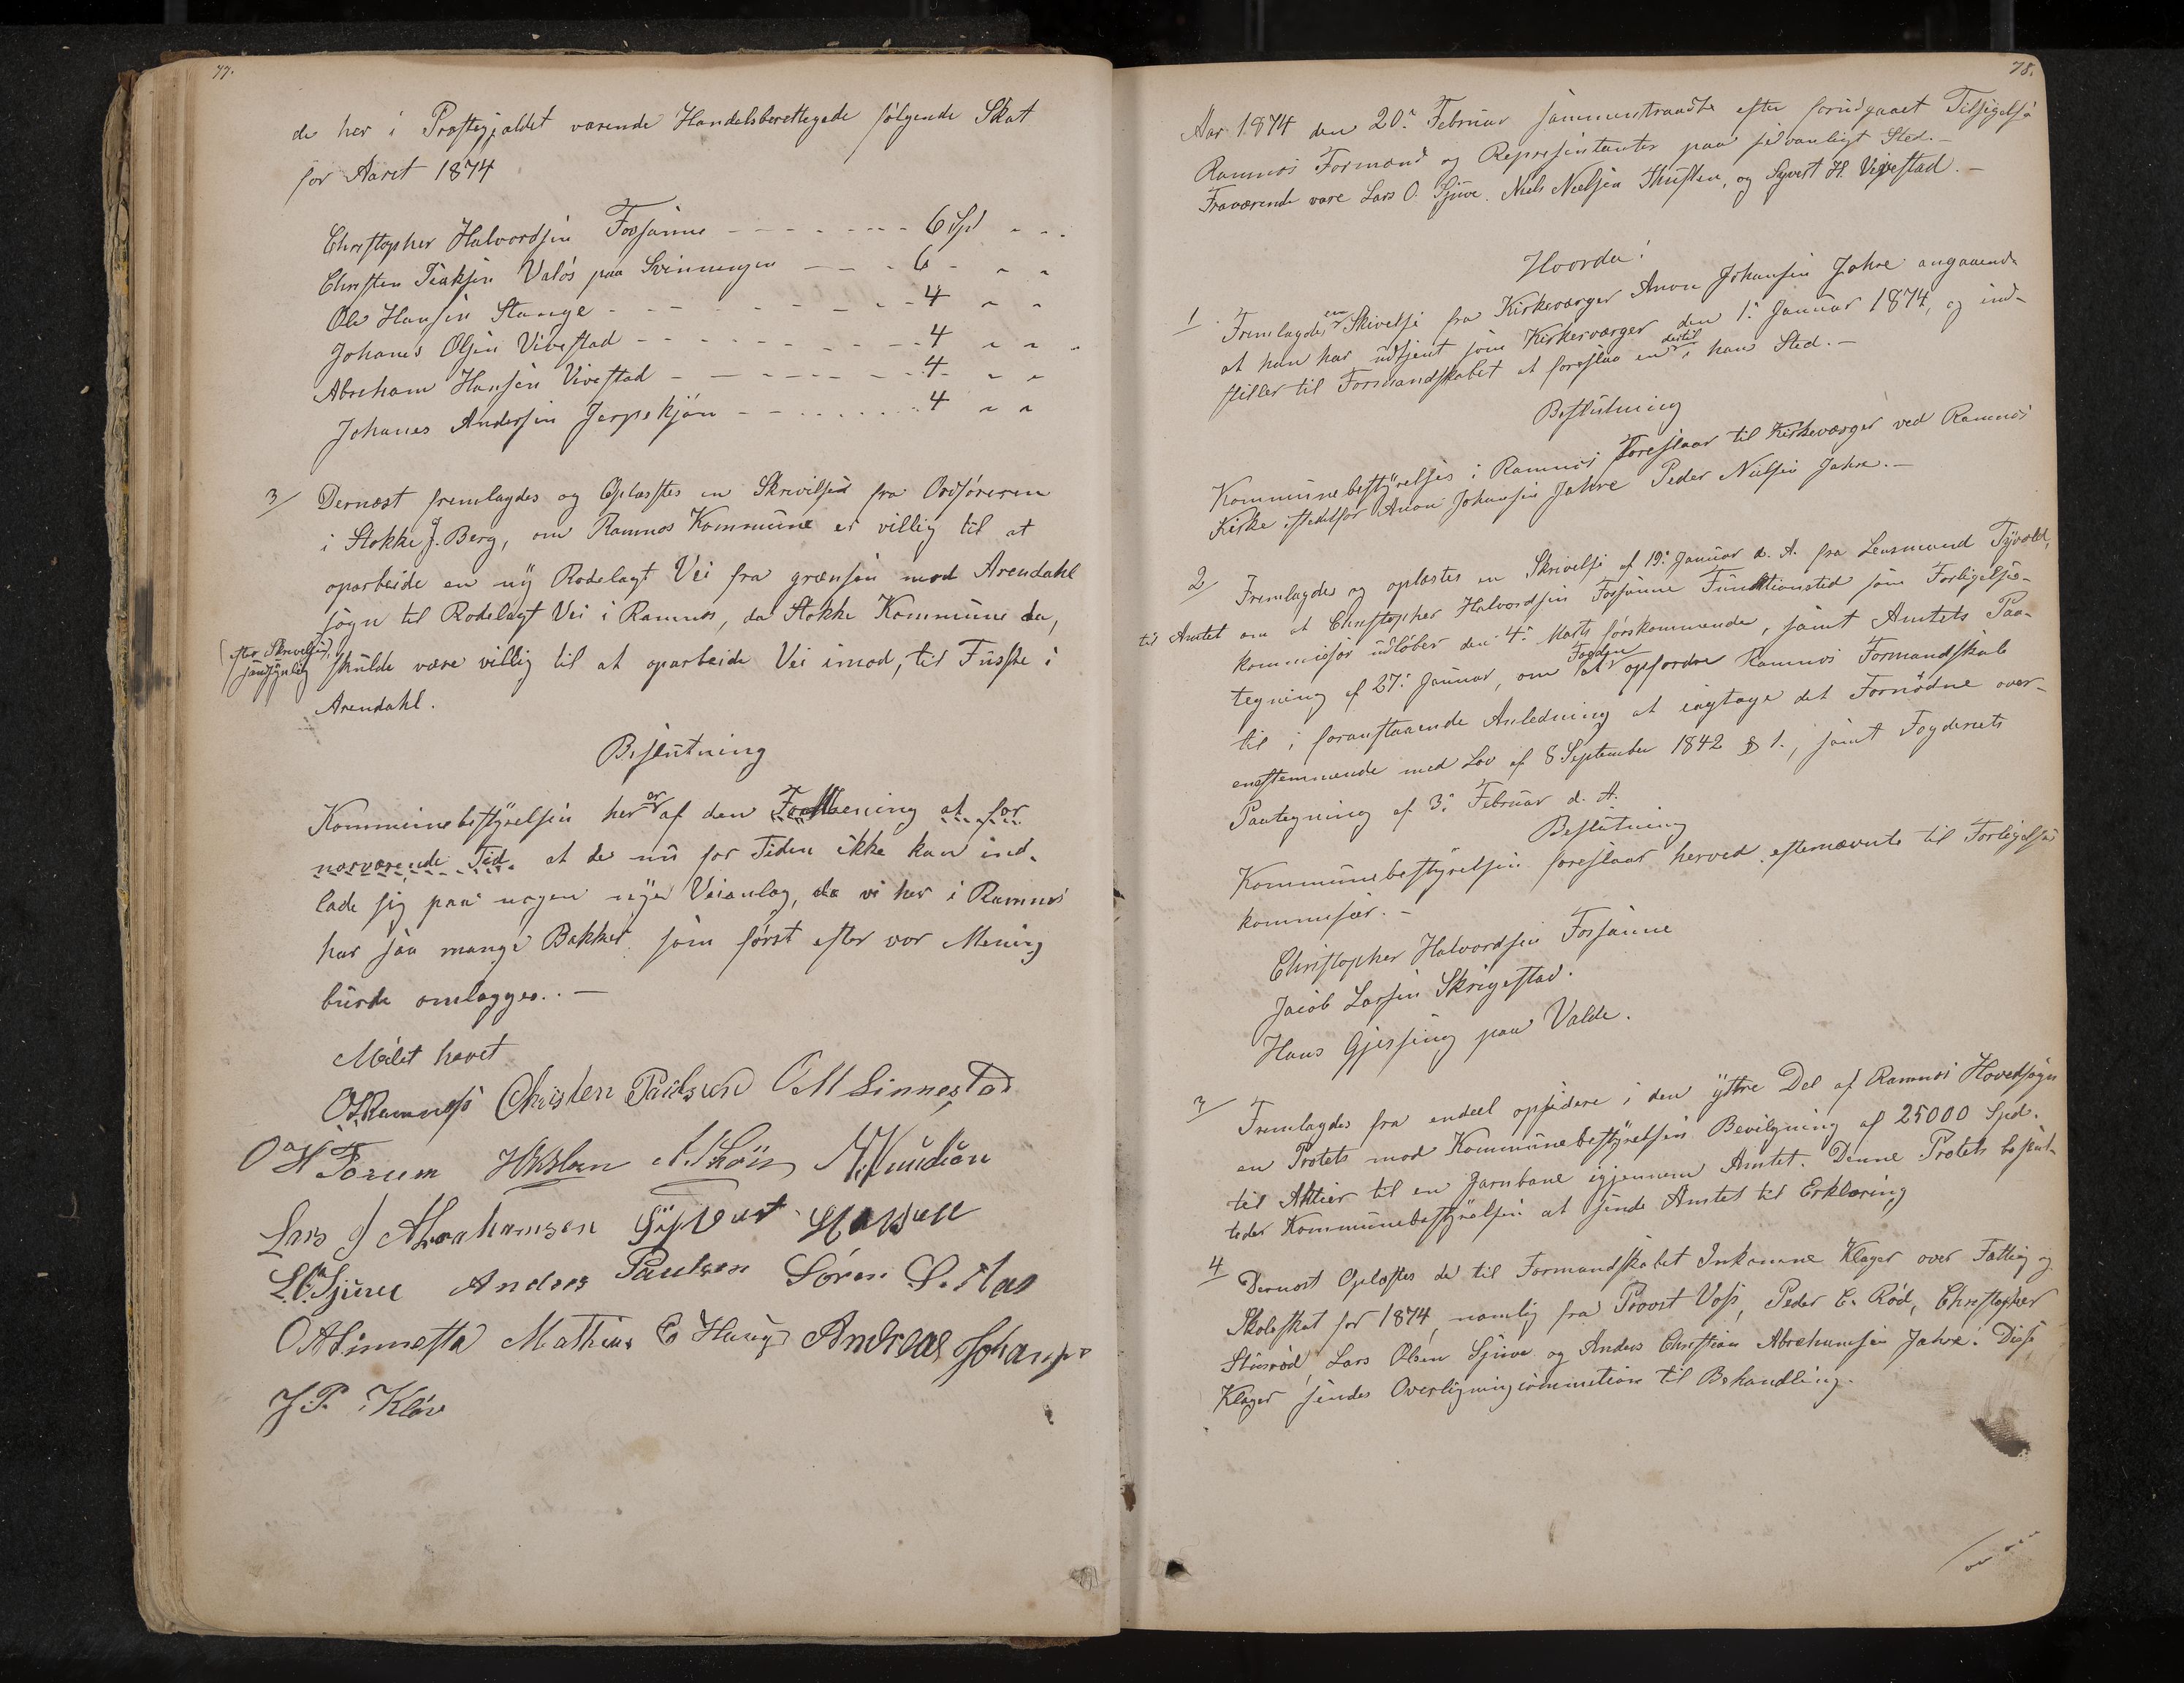 77.
de her i Præstegjældet værende Handelsberettegede følgende Skat
for Aaret 1874
Christopher Halvordsen Fossanne - - - - - - - 6 Spd - - -
Christen Isaksen Valös paa Svinningen - - - 6 - - -
Ole Hansen Stange - - - - - - - - 4 - -
Johanes Olsen Vivestad - - - - - - - - - 4 - - -
Abraham Hansen Vivestad - - - - - - - - 4 - -
Johanes Andersen Jerpekjøn - - - - - - - - 4 - -
3/ Dernæst fremlagdes og Oplæstes en Skrivelse fra Ordføreren
i Stokke J. Berg, om Ramnæs Kommune er villig til at
oparbeide en ny Rodelagt Vei fra grænsen mod Arendahl
sogn til Rodelagt Vei i Ramnæs, da Stokke Kommune da,
(efter Skrivelsen)
sandsynlig skulde være villig til at oparbeide Vei imod, til Fusske i
Arendahl.
Beslutning
Kommunebestyrelsen her er af den Formening at for
nærværende Tid. at de nu for Tiden ikke kan ind-
lade sig paa nogen nye Veianlæg, da vi her i Ramnæs
har saa mange Bakker som først efter vor Mening
burde omlægges. . —
Mödet hævet
O. Ramnæs Christen Paulsen O M Linnestad
O H Forum A. Sköis M. Knudsen
Lars J Abrahamsen Syvert Hansen
L. O. Sjuve Anders Paulsen Sören S. Aas
O A Linnesta Mathias E Haugs Andreas Johans
J. P. Kløv
78.
Aar 1874 den 20. Februar sammentraadte efter forudgaaet Tilsigelse
Ramnæs Formænd og Repræsentanter paa sedvanligt Sted. —
Fraværende vare Lars O. Sjuve. Niels Nielsen Thusten, og Syvert H. Vivestad. —
Hvorda:
1 Fremlagdes en Skivelse fra Kirkeværger Anon Johansen Jahre angaaende
at han har udtjent som Kirkeværger den 1. Januar 1874, og ind-
stiller til Formandskabet at foreslaa en dertil i hans Sted. —
Beslutning
Kommunebestyrelses i Ramnæs foreslaar til Kirkeværger ved Ramnæs
Kirke istedetfor Anon Johansen Jahre Peder Nielsen Jahre. —
2/ Fremlagdes og oplæstes en Skrivelse af 19. Januar d. A. fra Lensmand Tyvold,
til Amtet om at Christopher Halvordsen Fossanne Funktionstid som Forligelses-
kommissær udløber den 4. Marts førstkommende, samt Amtets Paa-
tegning af 27. Januar, om Fogden at opfordre Ramnæs Formandskab
til i foranstaaende Anledning at iagtage det Fornødne over-
ensstemmende med Lov af 8 September 1842 § 1., samt Fogderiets
Paategning af 3. Februar d. A.
Beslutning
Kommunebestyrelsen foreslaar herved efternævnte til Forligelses
kommisær. —
Christopher Halvordsen Fossanne
Jacob Larsen Skrigestad.
Hans Gjersing paa Valde.
3/ Fremlagdes fra endeel opsidere i den yttre Del af Ramnæs Hovedsogn
en Protets mod Kommunebestyrelsen Bevilgning af 25000 Spd.
til Aktier til en Jernbane igjennem Amtet. Denne Protets beslut-
teder Kommunebestyrelsen at sende Amtet til Erklæring
4/ Dernæst Oplæstes de til Formandskabet Inkomne Klager over Fattig og
Skoleskat for 1874, namlig fra Provst Voss, Peder C. Rød, Christopher
Stusrød, Lars Olsen Sjuve og Anders Christian Abrahamsen Jahre. Disse
Klager sendes Overligningcommition til Behandling.